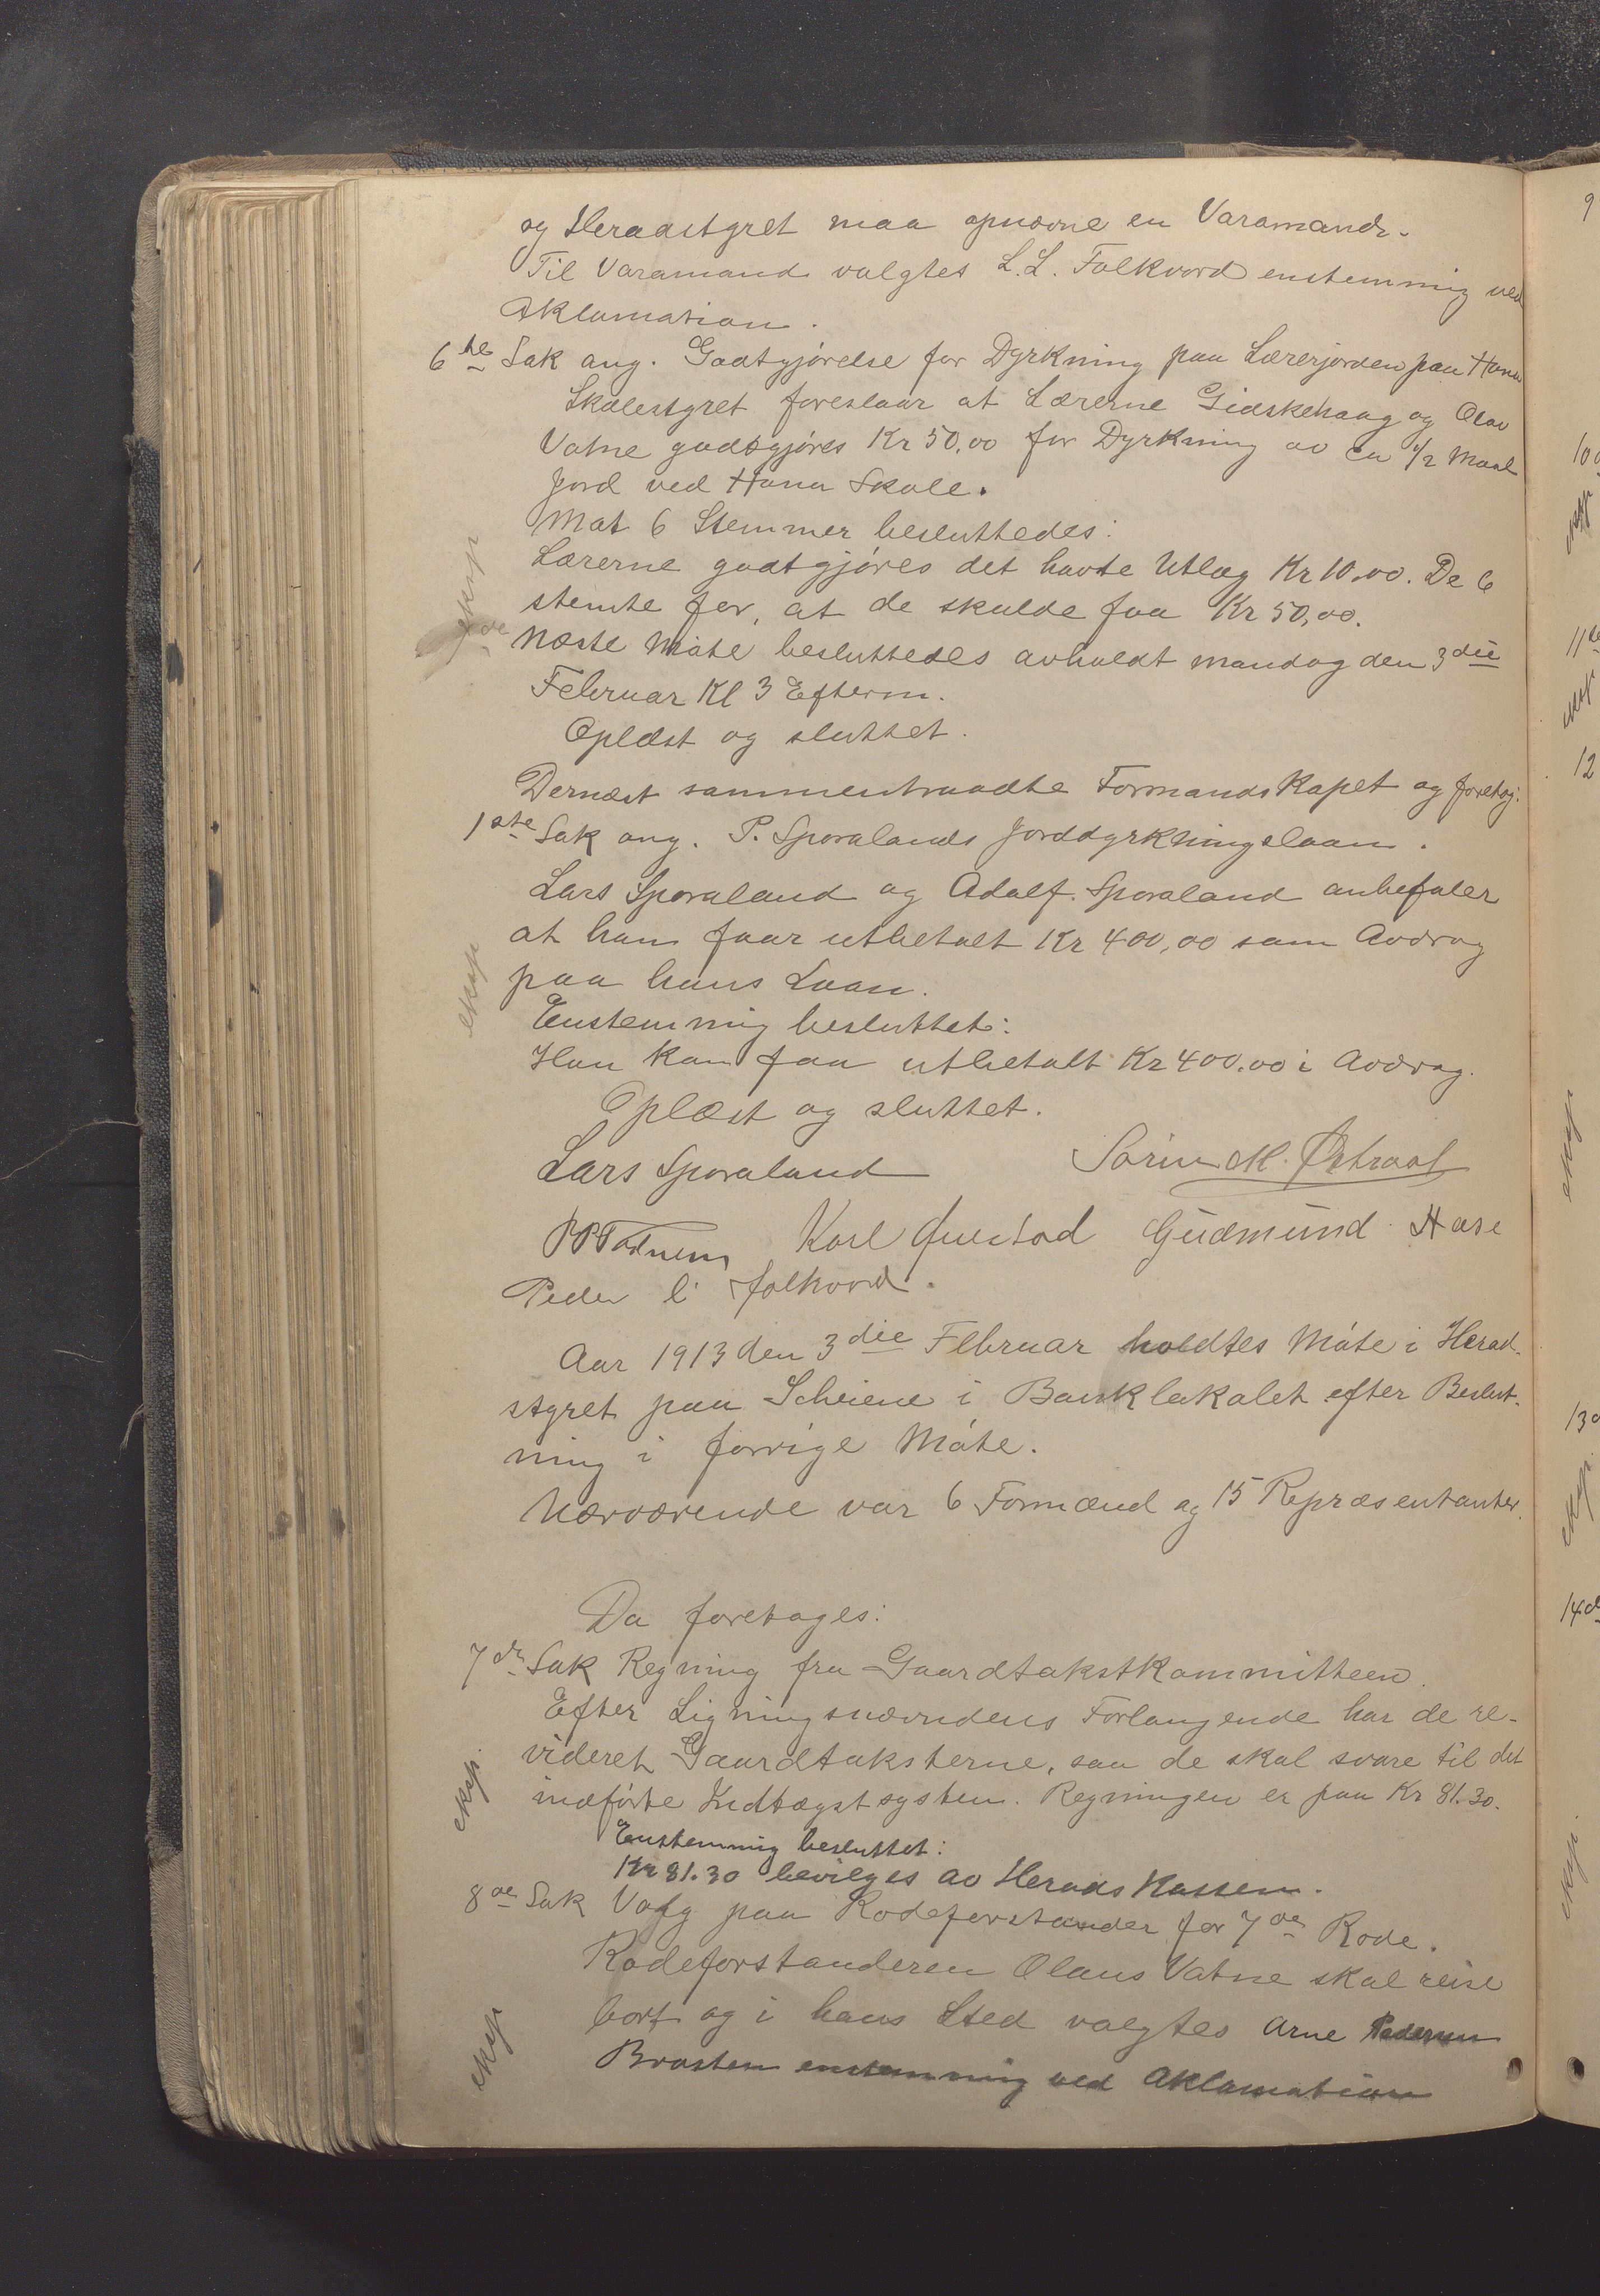 og Heradstyret maa opnævne en Varamand.
Til Varamand valgtes L. L. Folkvord enstemmig ved
Aklamation.
6te Sak ang. Godtgjørelse for Dyrkning paa Lærerjorden paa Hana
Skolestyret foreslaar at Lærerne Gidskehaug og Olav
Vatne godsgjøres Kr 50,00 for Dyrkning av ca 1/2 Maal
Jord ved Hana Skole.
Mot 6 Stemmer besluttedes:
Lærerne godtgjøres det havte Utlæg Kr 10,00. De 6
eksp
stemte for, at de skulde faa Kr 50,00.
Næste Møte besluttedes avholdt mandag den 3die
Februar Kl 3 Efterm.
Oplæst og sluttet.
Dernæst sammentraadte Formandskapet og foretog:
1ste Sak ang. P. Sporalands Jorddyrkningslaan.
Lars Sporaland og Adolf Sporaland anbefaler
at han faar utbetalt Kr 400,00 som Avdrag
eksp
paa hans Laan.
Enstemmig besluttet:
Han kan faa utbetalt Kr 400.00 i Avdrag.
Oplæst og sluttet.
Lars Sporaland Søren M. Østraat
Karl Gudmund Hove
Peder L. Folkvord.
Aar 1913 den 3die Februar holdtes Møte i Herad-
styret paa Scheiene i Banklokalet efter Beslut-
ning i forrige Møte.
Nærværende var 6 Formænd og 15 Repræsentanter.
Da foretages:
7de Sak Regning fra Gaardtakstkommitteen.
Efter Ligningsnævndens Forlangende har de re-
videret Gaardtaksterne, saa de skal svare til det
eksp.
indførte Indtægtsystem. Regningen er paa Kr 81.30.
Enstemmig besluttet:
Kr 81.30 bevilges av Heradskassen.
8de Sak Valg paa Rodeforstander for 7de Rode.
Rodeforstanderen Olaus Vatne skal reise
eksp
bort og i hans Sted valgtes Arne Pedersen
Brasten enstemmig ved Aklamation
9
10
eksp
11te
eksp
12
eksp
13
eksp
14
eksp